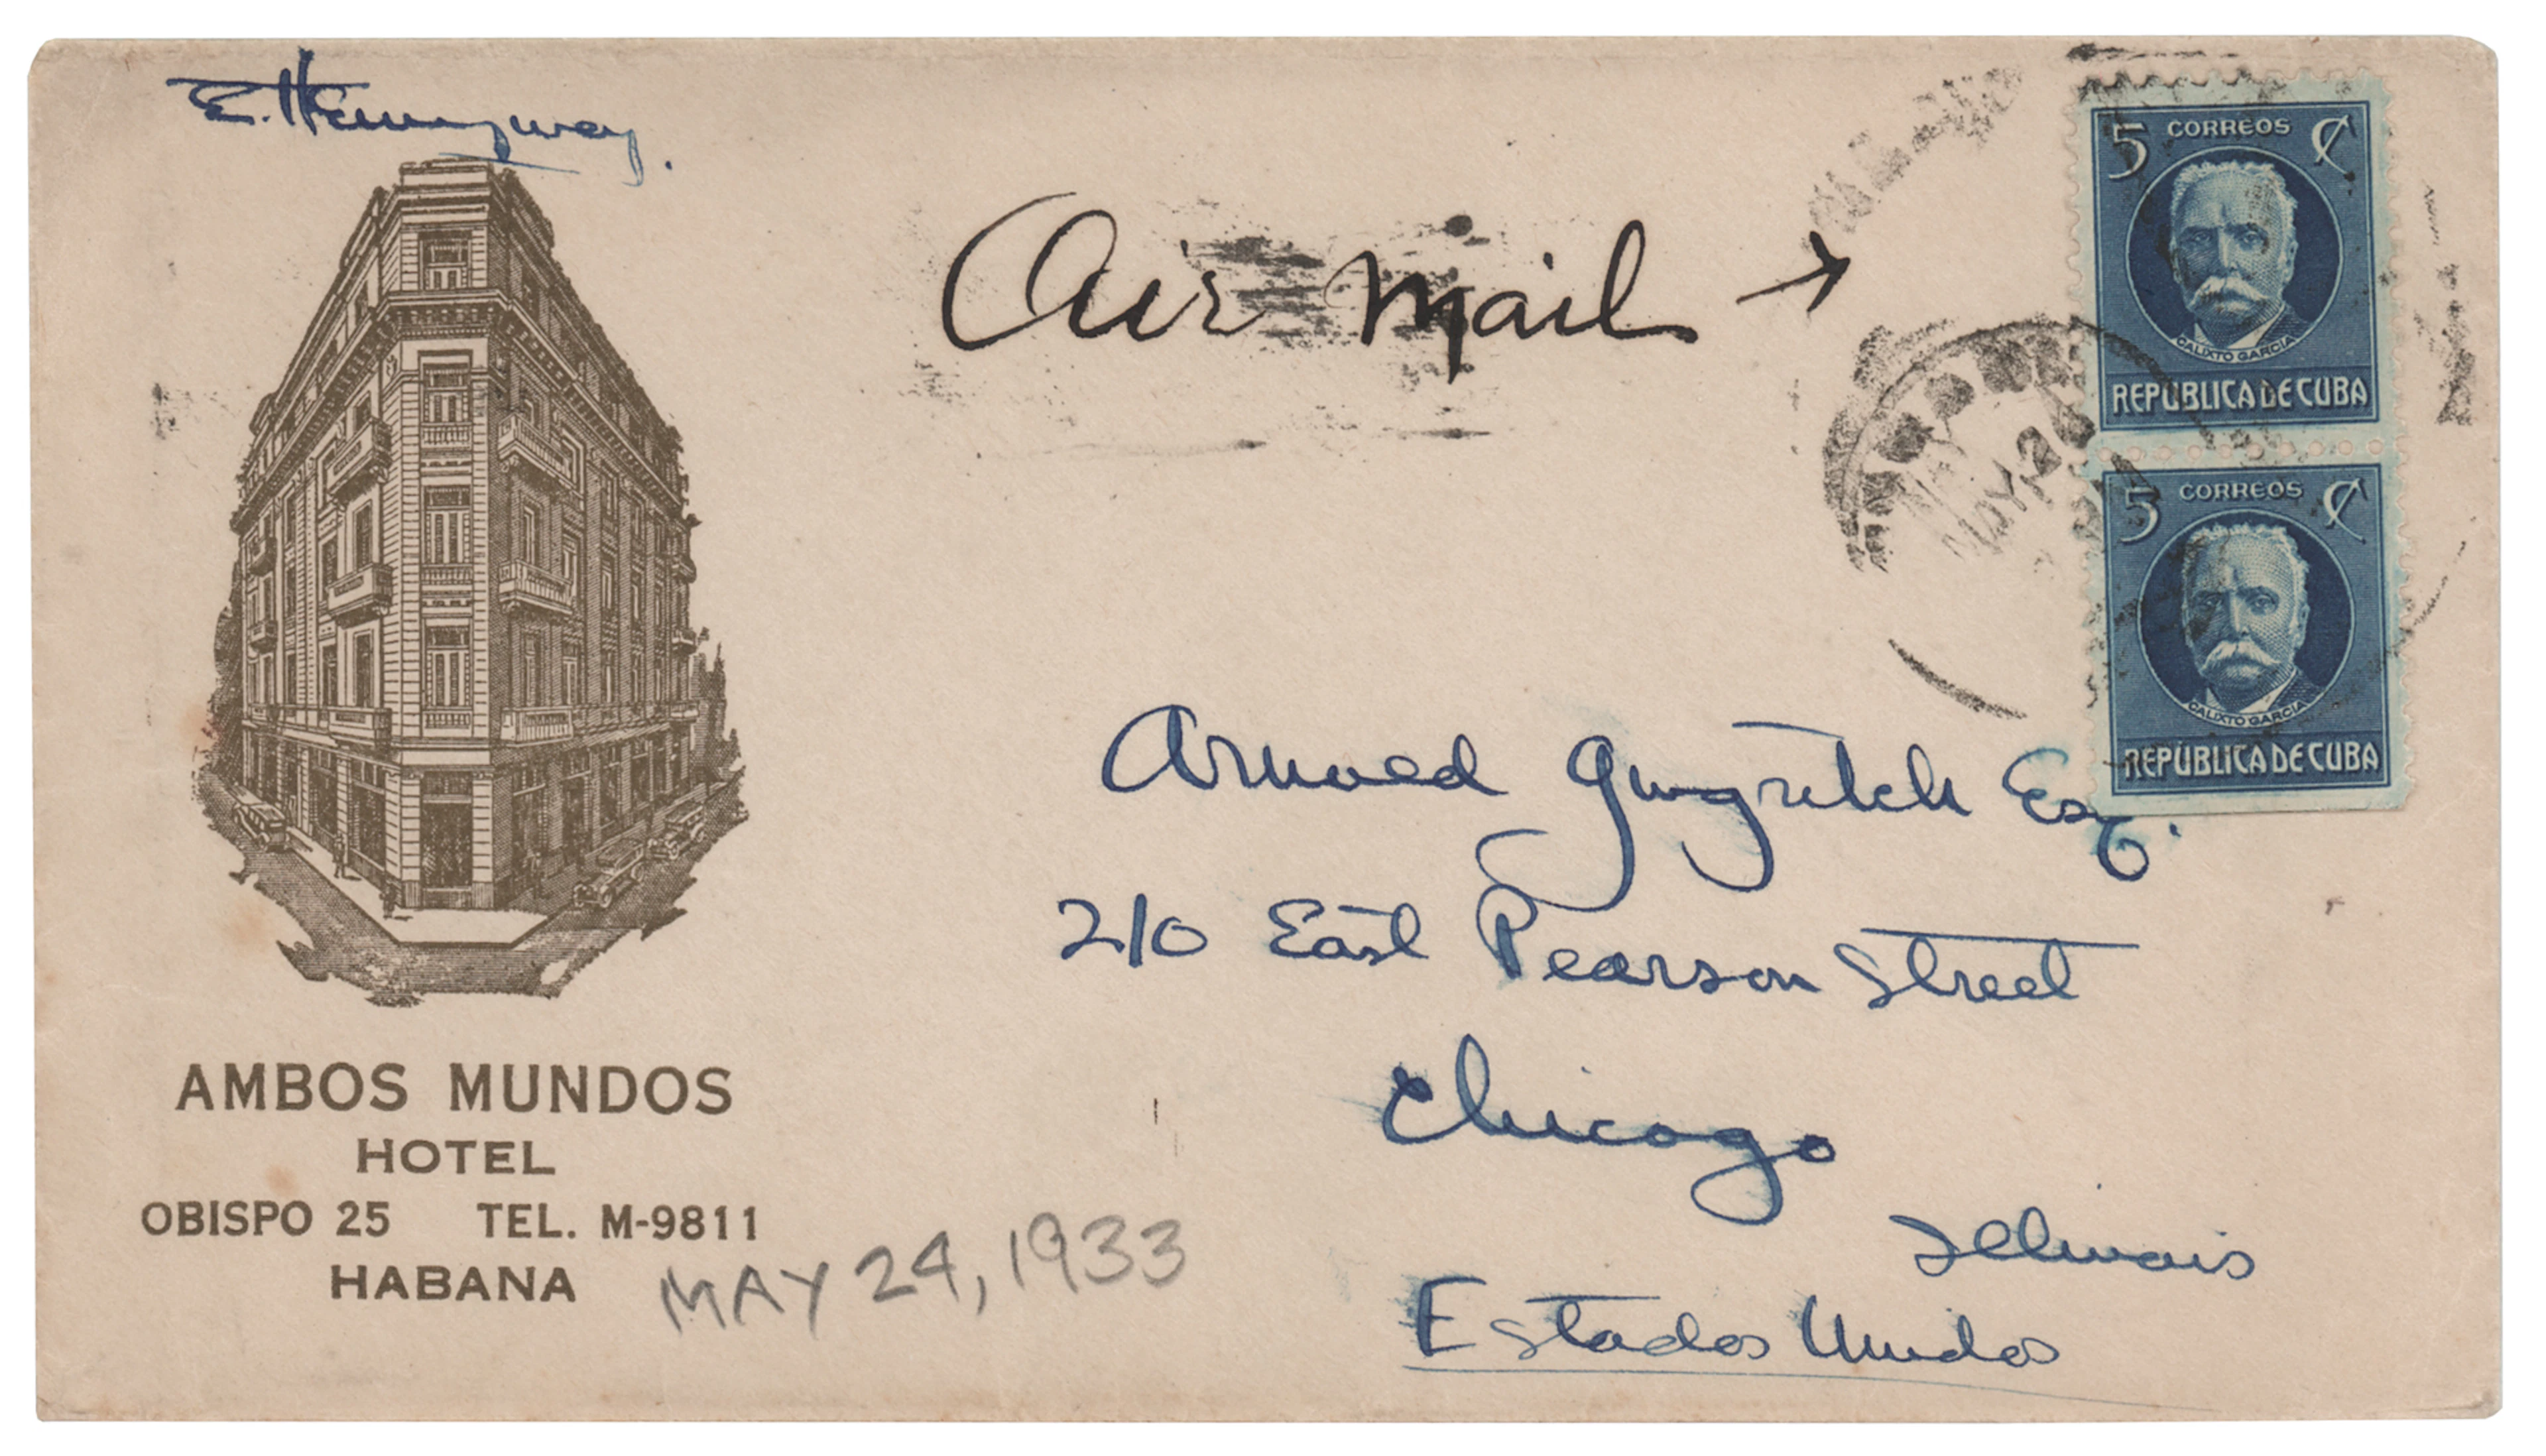 E. Hemingway.
Air Mail →
5 CORREOS ¢
CALIXTO GARCIA
REPUBLICA DE CUBA
5 CORREOS ¢
CALIXTO GARCIA
REPUBLICA DE CUBA
MAY 2
Arnold Gingrich Esq.
210 East Pearson Street
Chicago
Illinois
Estados Unidos
AMBOS MUNDOS
HOTEL
OBISPO 25 TEL. M-9811
HABANA
MAY 24, 1933